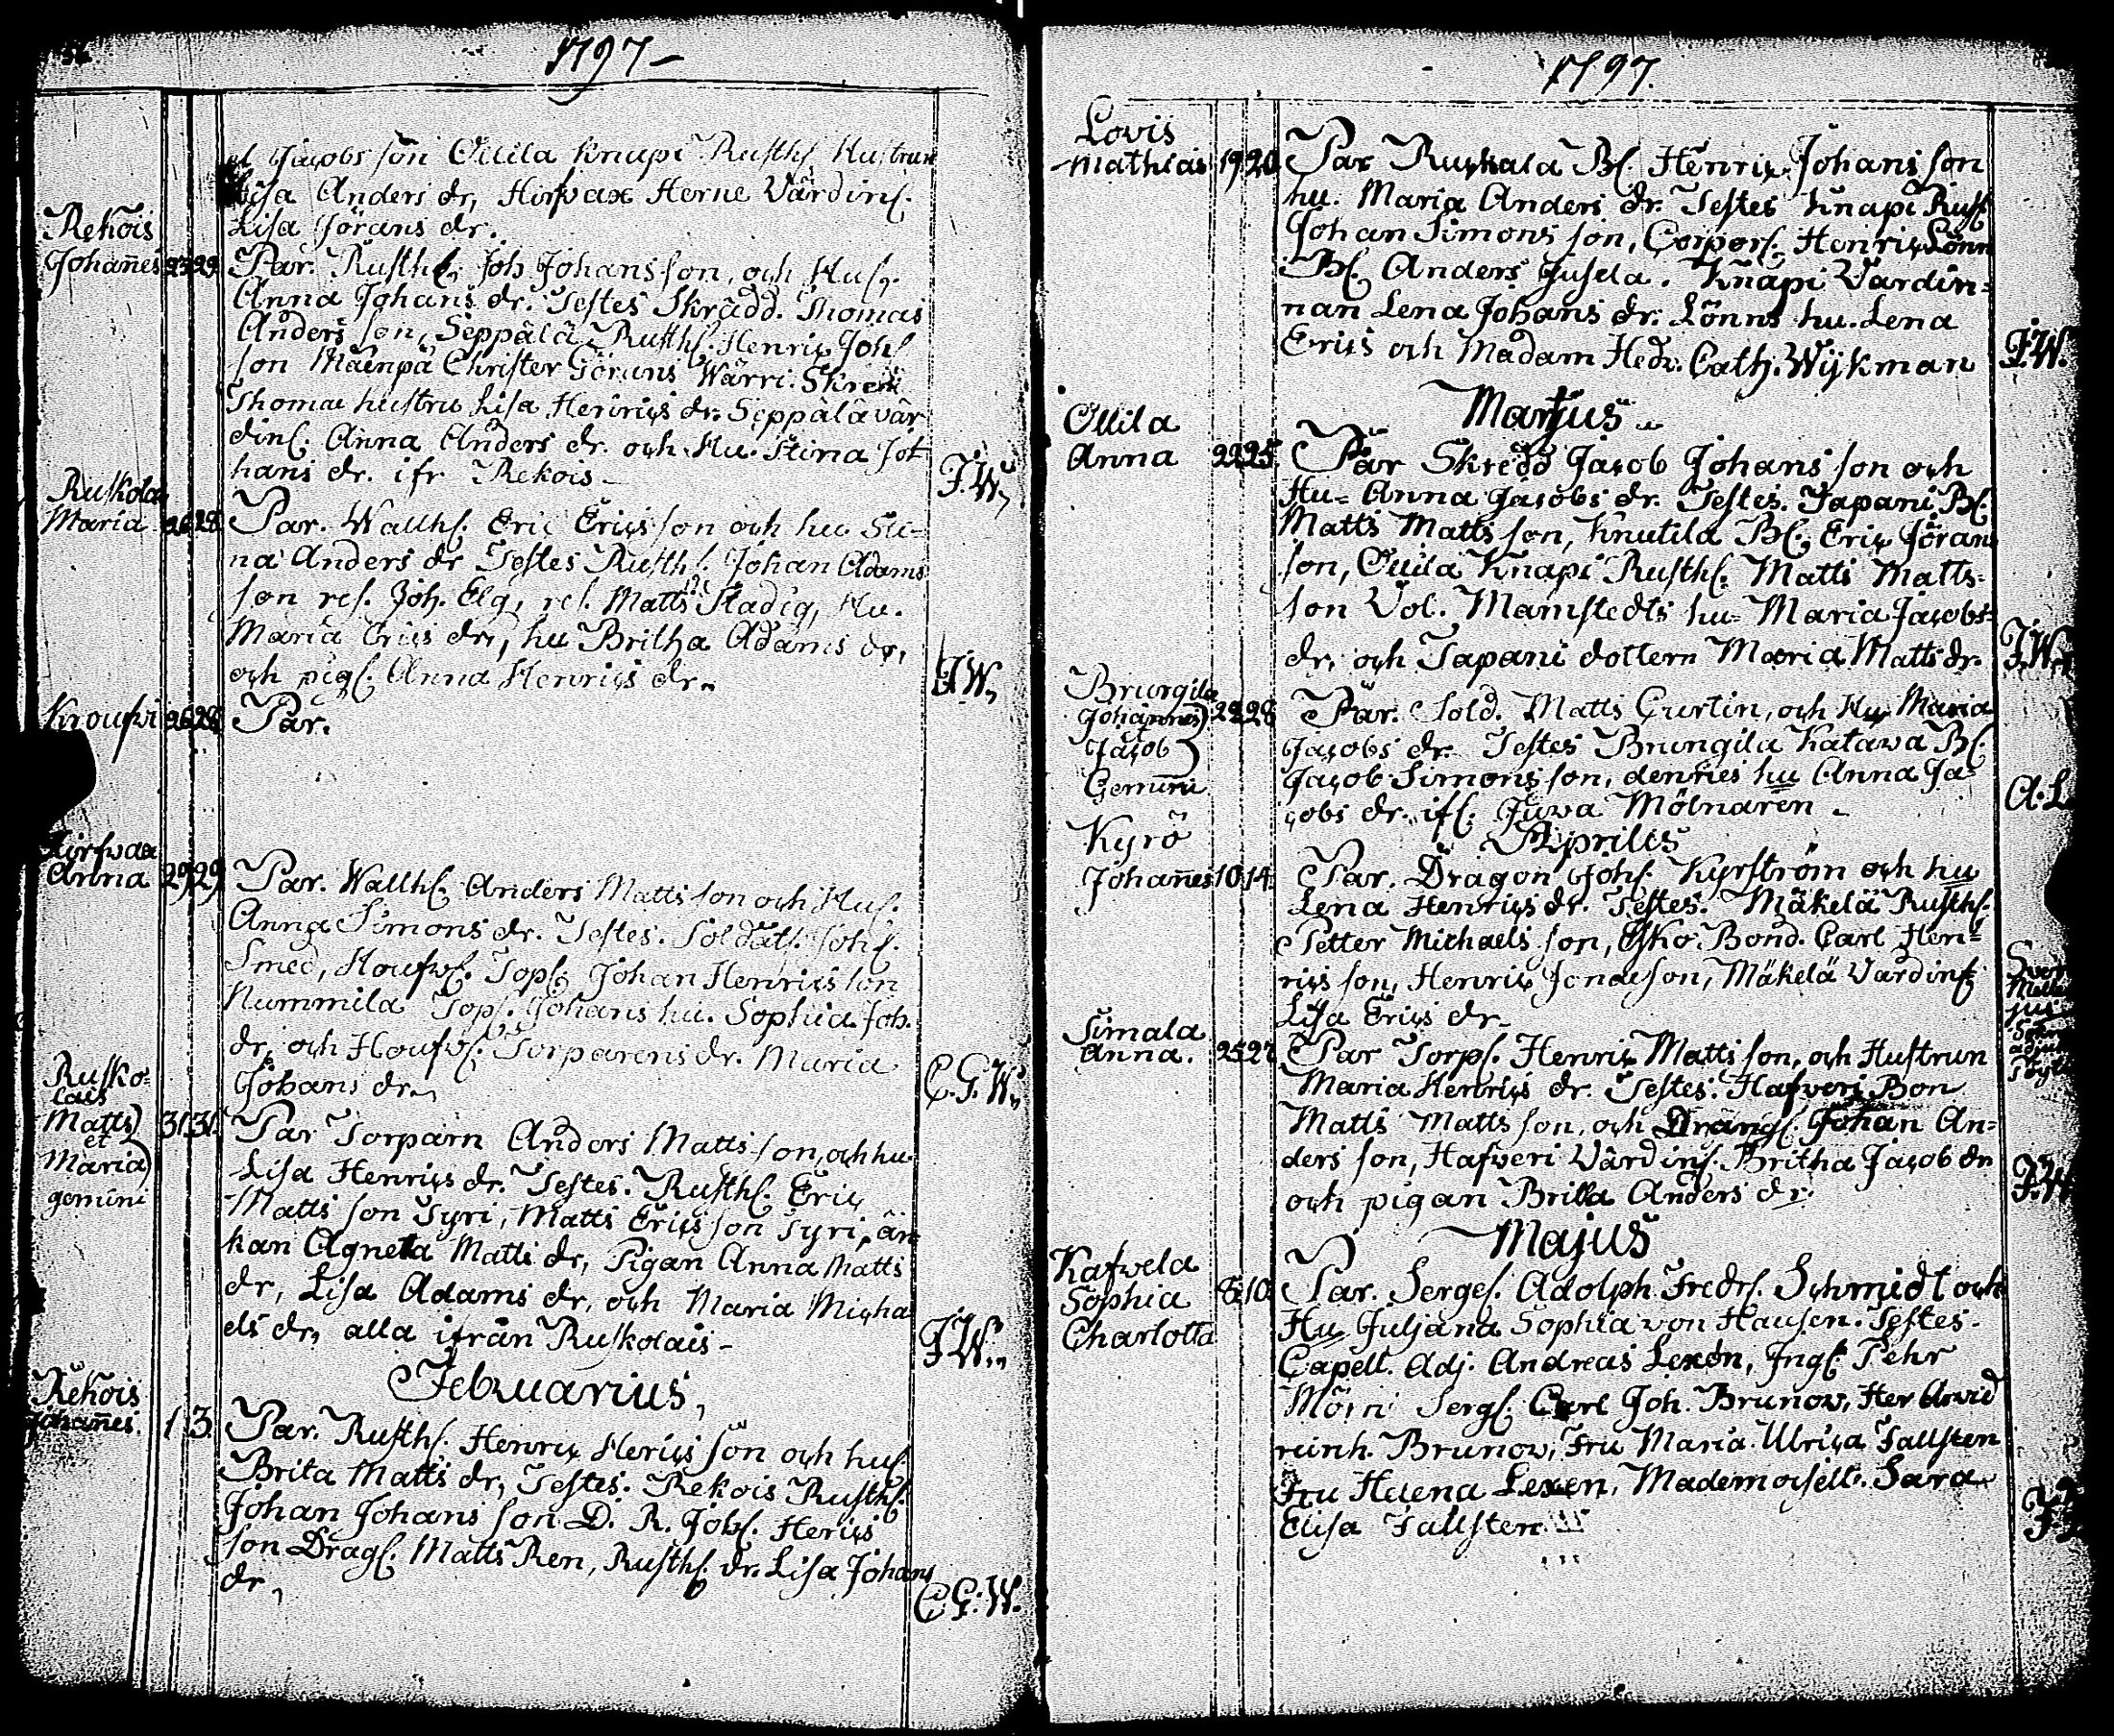 1797
et Jacobs son Ollila Knapi Rusth. Hustrun
Lisa Anders dr, Hirfvax Herne Värdin.
Lisa Jörans dr.
Rekois
Johañes 23 29 Par. Rusth. Joh Johans son, och Hus.
Anna Johans dr. Testes Skrädd. Thomas
Anders son, Seppälä Rusth. Henric Joh.
son Mäenpä Christer Görans Wärri. Skredd
Thomae hustru Lisa Henrics dr. Seppälä vär
din. Anna Anders dr. och Hu. Stina Jo
hans dr. ifr Rekois
J.W.
Ruskola
Maria 26 28 Par. Wallh. Eric Erics son och hu Sti-
na Anders dr Testes Rusth. Johan Adams
son res. Joh. Elg, res. Matts Stadig, Hu.
Maria Erics dr, hu Britha Adams dr,
och pig. Anna Henrics dr.
J.W.
Kroufvi 26 28 Par.
Hirfvax
Anna 29 29 Par. Wallh. Anders Matts son och Hus.
Anna Simons dr. Testes. Soldat. Joh.
Smed, Houfv. Torp. Johan Henrics son
Nummila Torp. Johans hu. Sophia Joh.
dr, och Houfv. Torparens dr. Maria
Johans dr.
C.G.W.
Rusko-
lais
Matts
et
Maria
gemini 31 31 Par Torparn Anders Matts son, och hu
Lisa Henrics dr. Testes. Rusth. Eric
Matts son Tyri, Matts Erics son Tyri, än-
kan Agneta Matts dr, Pigan Anna Matts
dr, Lisa Adams dr, och Maria Micha
els dr, alla ifrån Ruskolais
J.W.
Februarius,
Rekois
Johañes. 1 3 Par. Rusth. Henric Herics son och hus.
Brita Matts dr, Testes. Rekois Rusth.
Johan Johans son D. R. Joh. Herics
son Drag. Matts Ren, Rusth. dr. Lisa Johans
dr,
C.G.W.
1797.
Lovis
Mathias 19 20 Par Ruskala B. Henric Johans son
hu. Maria Anders dr. Testes Knapi Rus.
Johan Simons son, Corpor. Henric Lönn
B. Anders Jusela. Knapi Värdin-
nan Lena Johans dr. Lönns hu. Lena
Erics och Madam Hedv. Cath. Wijkman
J.W.
Martjus
Ollila
Anna 22 25 Par Skredd Jacob Johans son och
Hu- Anna Jacobs dr. Testes. Tapani B.
Matts Matts son, Knutila B. Eric Jörans
son, Ollila Knapi Rusth. Matts Matts-
son Vol. Mamstedts hu- Maria Jacobs-
dr, och Tapani dottern Maria Matts dr.
J.W.
Brungila
Johannes
Jacob
Gemini 22 28 Par. Sold. Matts Curtin, och Hu Maria
Jacobs dr. Testes Brungila Katawa B.
Jacob Simons son, dennes hu Anna Ja-
cobs dr. if. Juva Mölnaren
A.L.
Aprilis
Kyrö
Johañes 10 14 Par. Dragon Joh. Kyrström och hu
Lena Henrics dr. Testes. Mäkelä Rusth.
Petter Michaels son, Esko Bond. Carl Hen-
rics son, Henric Jondeson, Mäkelä Värdin.
Lisa Erics dr.
Simala
Anna. 25 27 Par Torp. Henric Matts son, och Hustrun
Maria Henrics dr. Testes. Hafveri Bon
Matts Matts son, och Dräng. Johan An-
ders son, Hafveri Värdin. Britha Jacob dr
och pigan Britta Anders dr.
J.W.
Majus
Kafvela
Sophia
Charlotta 8 10 Par. Serge. Adolph Fredr. Schmidt och
Hu Juljana Sophia von Hausen. Testes
Capell. Adj. Andreas Lexén, Ing. Pehr
Serg. Carl Joh. Brunow, Her Arvid
reinh. Brunow, Fru Maria Ulrica Tallsten
Fru Helena Lexen, Mademoisell. Sara
Elisa Tallsten